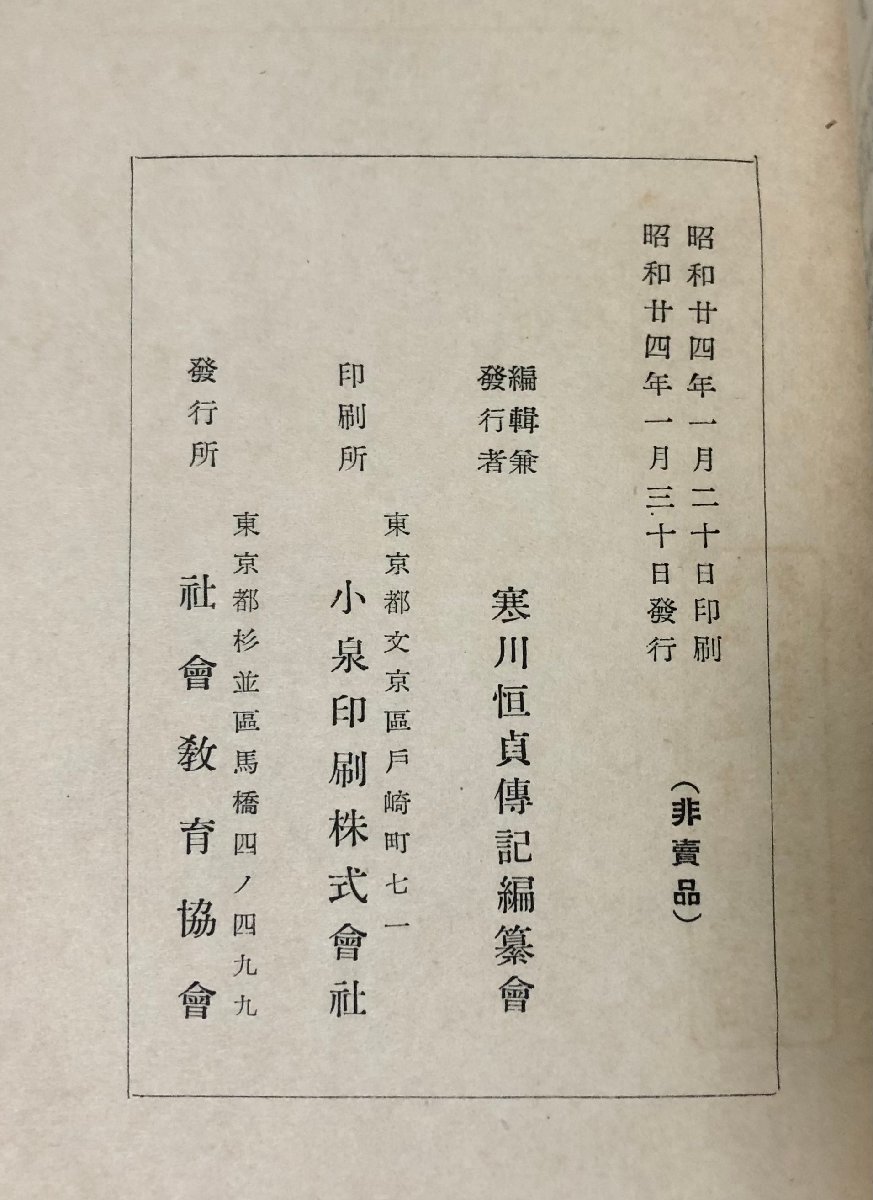 昭和廿四年一月二十日印刷
昭和廿四年一月三十日發行
(非賣品)
編輯兼
發行者
寒川恒貞傳記編纂會
東京都文京區戶崎町七一
印刷所
小泉印刷株式會社
東京都杉並區馬橋四ノ四九九
發行所
社會敎育協會